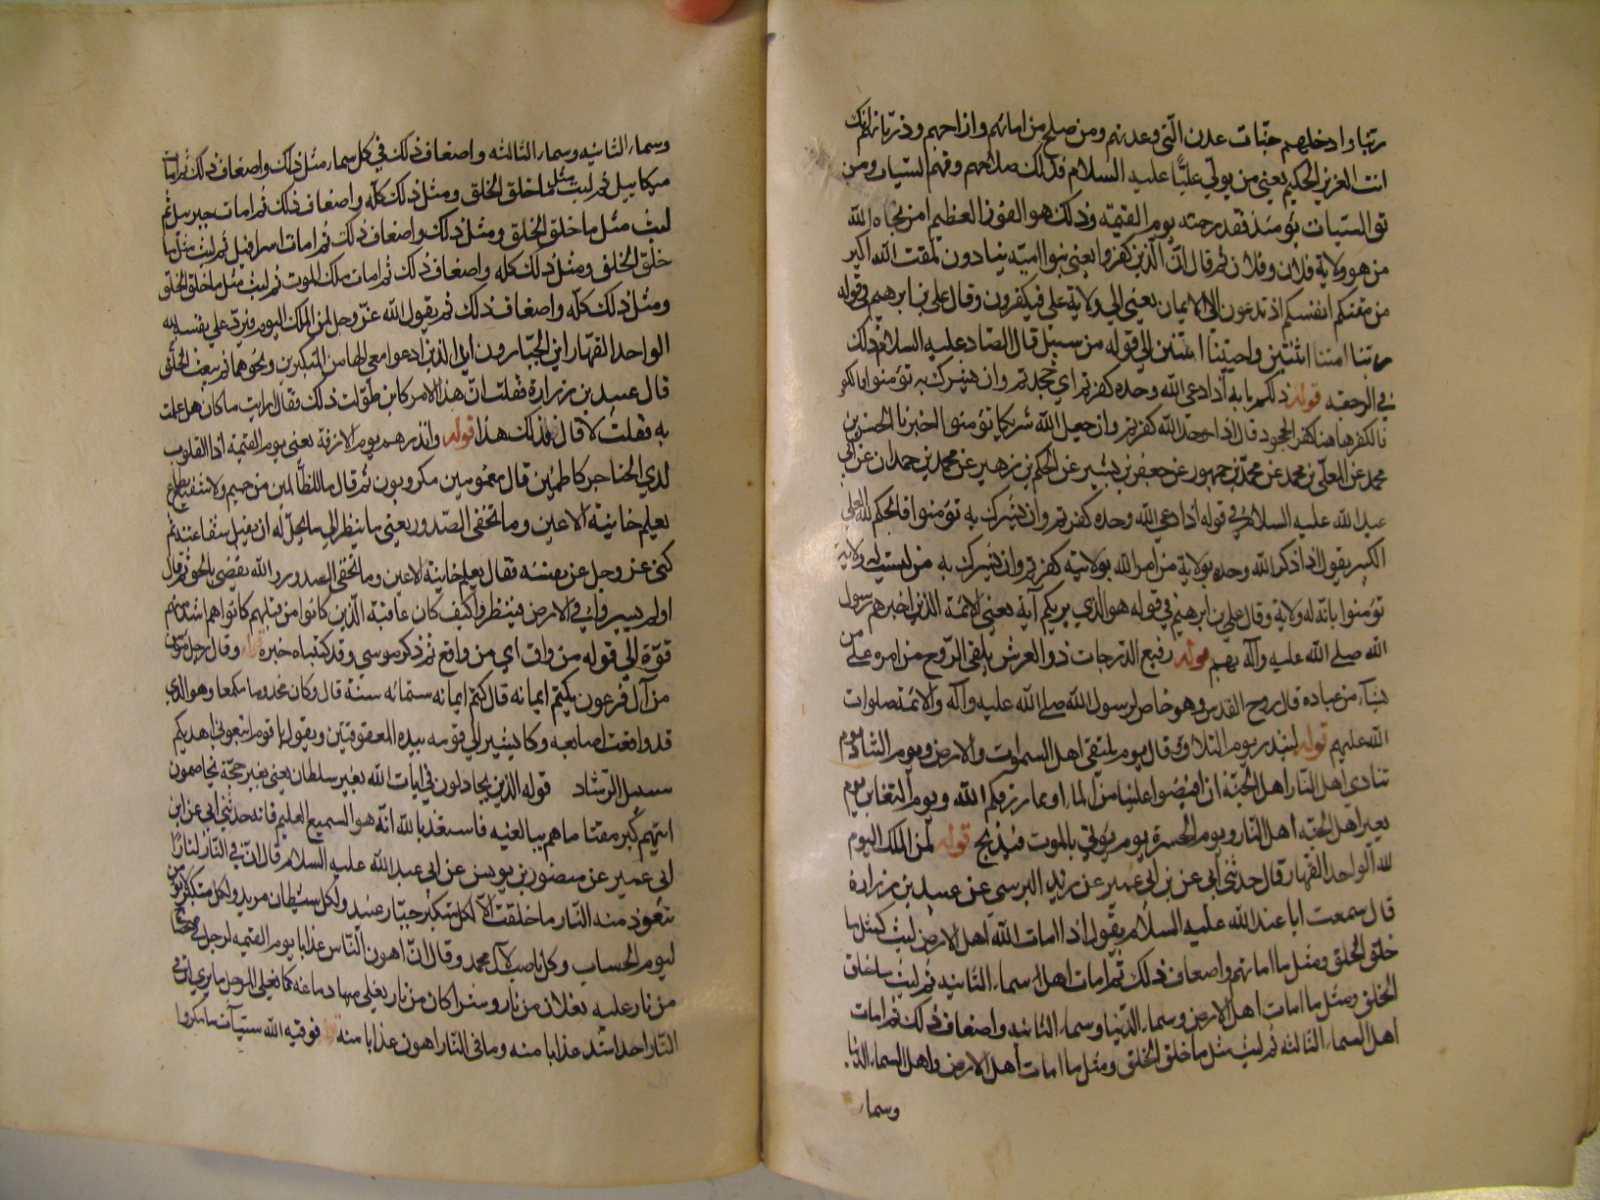 ربنا وادخلهم جنات عدن التي وعدتهم ومن صلح من ابائهم وازواجهم وذرياتهم انك
انت العزيز الحكيم يعني من يولي عليًّا عليه السلام فذلك صلاحهم وقهم السيئات ومن
تق السيئات يومئذ فقد رحمته يوم القيمة وذلك هو الفوز العظيم لمن نجاه الله
من هو ولاية فلان وفلان ثم قال انّ الذين كفروا يعني بنوا امية ينادون لمقت الله اكبر
من مقتكم انفسكم اذ تدعون الى الايمان يعني الي ولاية علي فيكفرون وقال علي بن ابرهيم في قوله
ربنا امتنا اثنتين واحييتنا اثنتين الي قوله من سبيل قال الصادق عليه السلام ذلك
في الرجعة قوله ذلكم بانه اذا دعي الله وحده كفرتم اي جحدتم وان يشرك به تؤمنوا فالكفر
فالكفر هاهنا كفر الجحود قال اذا وحد الله كفرتم وان جعل الله شريكا تؤمنوا اخبرنا الحسن بن
محمد عن المعلّي بن محمد عن محمد بن جمهور عن جعفر بن بشير عن الحكم بن زهير عن محمد بن حمدان عن ابي
عبد الله عليه السلام في قوله اذا دعي الله وحده كفرتم وان يشرك به تؤمنوا فالحكم لله العلي
الكبير يقول اذا ذكر الله وحده بولاية من امر الله بولايته كفرتم وان يشرك به من ليست له ولاية
تؤمنوا بانّ له ولاية وقال علي بن ابرهيم في قوله هو الذي يريكم آياته يعني الائمة الذين اخبرهم رسول
الله صلى الله عليه وآله بهم قوله رفيع الدرجات ذو العرش يلقي الروح من امره على من
يشاء من عباده قال روح القدس وهو خاص لرسول الله صلى الله عليه وآله والائمة صلوات
الله عليهم قوله لينذر يوم التلاق قال يوم يلتقي اهل السموات والارض ويوم التناد يوم
تنادي اهل النار اهل الجنة ان افيضوا علينا من الماء او مما رزقكم الله ويوم التغابن يوم
يعير اهل الجنة اهل النار ويوم الحسرة يوم يؤتي بالموت فيذبح قوله لمن الملك اليوم
لله الواحد القهار قال حدثني ابي عن بن ابي عمير عن زيد البرسي عن عبيد بن زرارة
قال سمعت ابا عبد الله عليه السلام يقول اذا امات الله اهل الارض لبث كمثل ما
خلق الخلق ومثل ما اماتهم واضعاف ذلك ثم امات اهل السماء الثانية ثم لبث ما خلق
الخلق ومثل ما امات اهل الارض وسماء الدنيا وسماء الثانية واضعاف ذلك ثم امات
اهل السماء الثالثة ثم لبث مثل ما خلق الخلق ومثل ما امات اهل الارض واهل السماء الدنيا
وسماء
وسماء الثانية وسماء الثالثه واضعاف ذلك في كل سماء مثل ذلك واضعاف ذلك ثم امات
ميكائيل ثم لبث مثل ما خلق الخلق ومثل ذلك كلّه واضعاف ذلك ثم امات جبرئيل ثم
لبث مثل ما خلق الخلق ومثل ذلك واضعاف ذلك ثم امات اسرافيل ثم لبث مثل ما
خلق الخلق ومثل ذلك كله واضعاف ذلك ثم امات ملك الموت ثم لبث مثل ما خلق الخلق
ومثل ذلك كلّه واضعاف ذلك ثم يقول الله عزّ وجل لمن الملك اليوم فيردّ علي نفسه لله
الواحد القهّار اين الجبّارون اين الذين ادعوا معي الها اين المتكبرين ونحوهما ثم يبعث الخلق
قال عبيد بن زرارة فقلت انّ هذا الامر كائن طوّلت ذلك فقال ارايت ما كان هل علمت
به فقلت لا قال فذلك هذا قوله وانذرهم يوم الازفة يعني يوم القيمة اذا القلوب
لدي الحناجر كاظمين قال مغمومين مكروبون ثم قال ما للظالمين من حميم ولا شفيع يطاع
يعلم خائنة الاعين وما تخفي الصدور يعني ما ينظر الي ما يحل له ان يقبل شفاعته ثم
كني عز وجل عن نفسه فقال يعلم خائنة الاعين وما تخفي الصدور والله يقضي بالحق ثم قال
اولم يسيروا في الارض فينظروا كيف كان عاقبة الذين كانوا من قبلهم كانوا هم اشد منهم
قوّة الي قوله من واق اي من واقع ثم ذكر موسي وقد كتبناه خبره قوله وقال رجل مؤمن
من آل فرعون يكتم ايمانه قال كتم ايمانه ستمائه سنة قال وكان مجذوما مكنعا وهو الذي
قد وقعت اصابعه وكان يشير الي قومه بيده المعقوفتين ويقول يا قوم اتبعوني اهديكم
سبيل الرشاد قوله الذين يجادلون في ايات الله بغير سلطان يعني بغير حجّة يخاصمون
اتيهم كبر مقتا ما هم ببالغيه فاستعذ بالله انّه هو السميع العليم فانه حدثني ابي عن ابن
ابي عمير عن منصور بن يونس عن ابي عبد الله عليه السلام قال انّ في النار لنارًا
تتعوذ منه النار ما خلقت الا لكل متكبر جبّار عنيد ولكل شيطان مريد ولكل متكبر لا يؤمن
ليوم الحساب وكل ناصب لآل محمد وقال انّ اهون الناس عذابا يوم القيمة لرجل في ضحضاح
من نار عليه نعلان من نار وشراكان من نار يغلي منها دماغه كما يغلي المرجل ما يري ان في
النار احد اشد عذابا منه وما في النار اهون عذابا منه قوله فوقيه الله سيئات ما مكروا